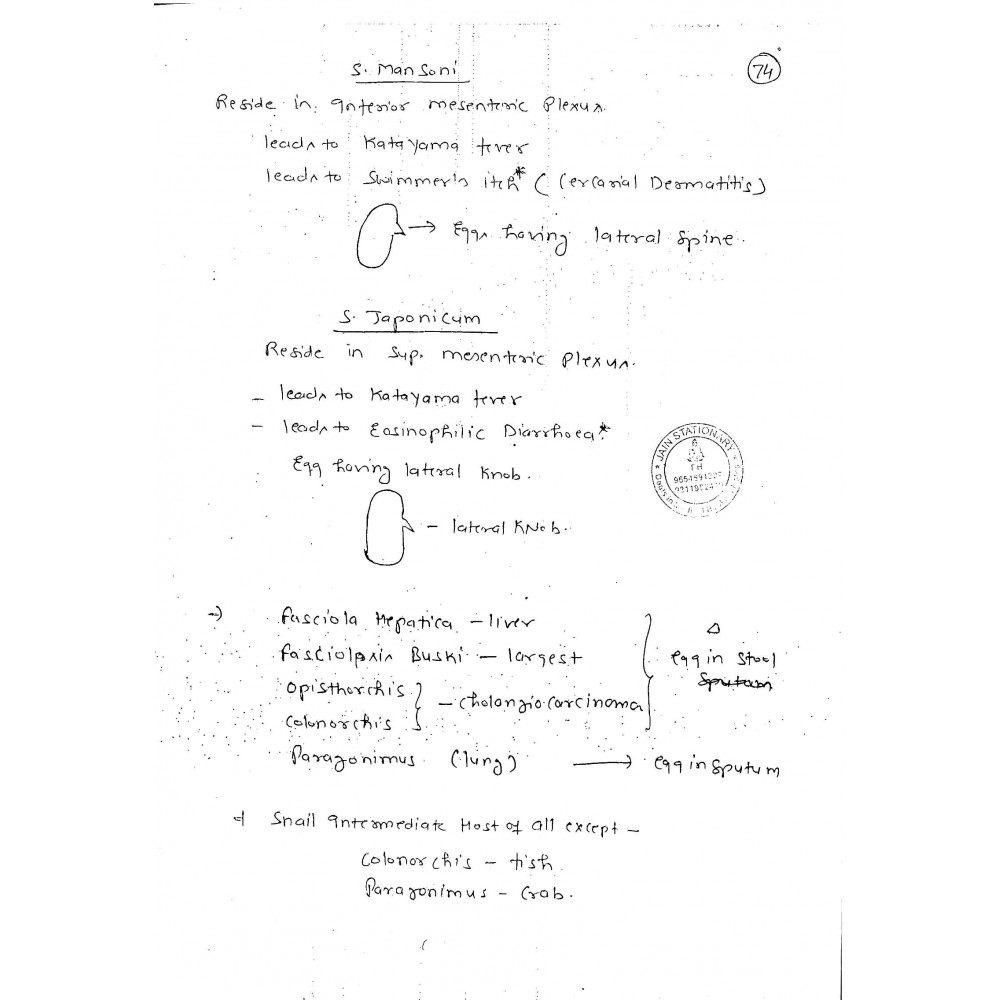 74
S. Mansoni
Reside in Inferior mesenteric Plexus.
leads to Katayama fever
leads to Swimmer's itch* (Cercarial Dermatitis)
→ Eggs having lateral Spine.
S. Japonicum
Reside in Sup. mesenteric Plexus.
- leads to Katayama fever
- leads to Eosinophilic Diarrhoea*
Egg having lateral Knob.
- lateral Knob.
JAIN STATIONARY
→) Fasciola Hepatica - liver
Fasciolpsis Buski - largest
Opisthorchis
Colonorchis
- cholangiocarcinoma
egg in stool
Sputum
Paragonimus (lung) → egg in sputum
Snail Intermediate Host of all except -
Colonorchis - fish
Paragonimus - Crab.